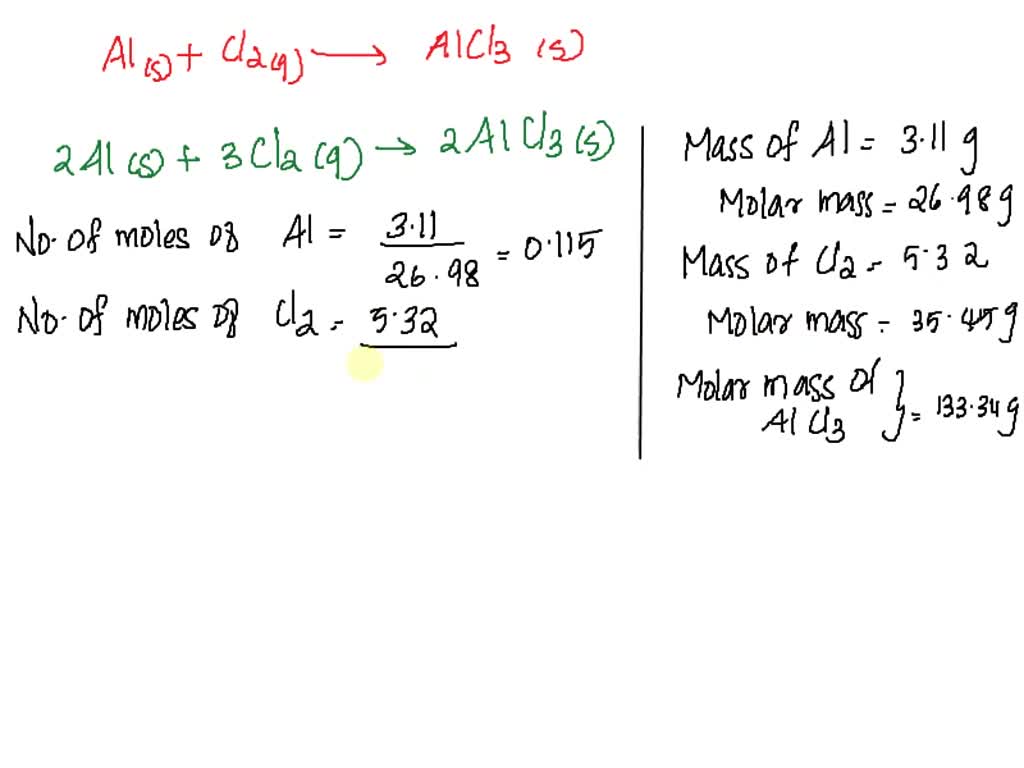 Al(s) + Cl2(g) → AlCl3 (s)
2Al(s) + 3Cl2(g) → 2AlCl3(s)
No. of moles of Al = 3.11 / 26.98 = 0.115
No. of moles of Cl2 = 5.32
Mass of Al = 3.11 g
Molar mass = 26.98g
Mass of Cl2 = 5.32
Molar mass = 35.45g
Molar mass of
AlCl3 } = 133.34g